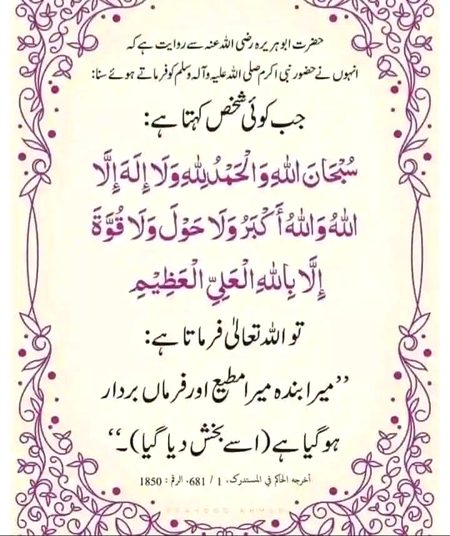 حضرت ابوہریرہ رضی اللہ عنہ سے روایت ہے کہ
انہوں نے حضور نبی اکرم صلی اللہ علیہ وآلہ وسلم کو فرماتے ہوئے سنا:
جب کوئی شخص کہتا ہے:
سُبْحَانَ اللهِ وَالْحَمْدُ لِلّٰهِ وَلَا إِلٰهَ إِلَّا
اللهُ وَاللهُ أَكْبَرُ وَلَا حَوْلَ وَلَا قُوَّةَ
إِلَّا بِاللهِ الْعَلِيِّ الْعَظِيْمِ
تو اللہ تعالیٰ فرماتا ہے:
’’میرا بندہ میرا مطیع اور فرماں بردار
ہو گیا ہے (اسے بخش دیا گیا)۔‘‘
أخرجه الحاكم في المستدرك، 1 / 681، الرقم : 1850